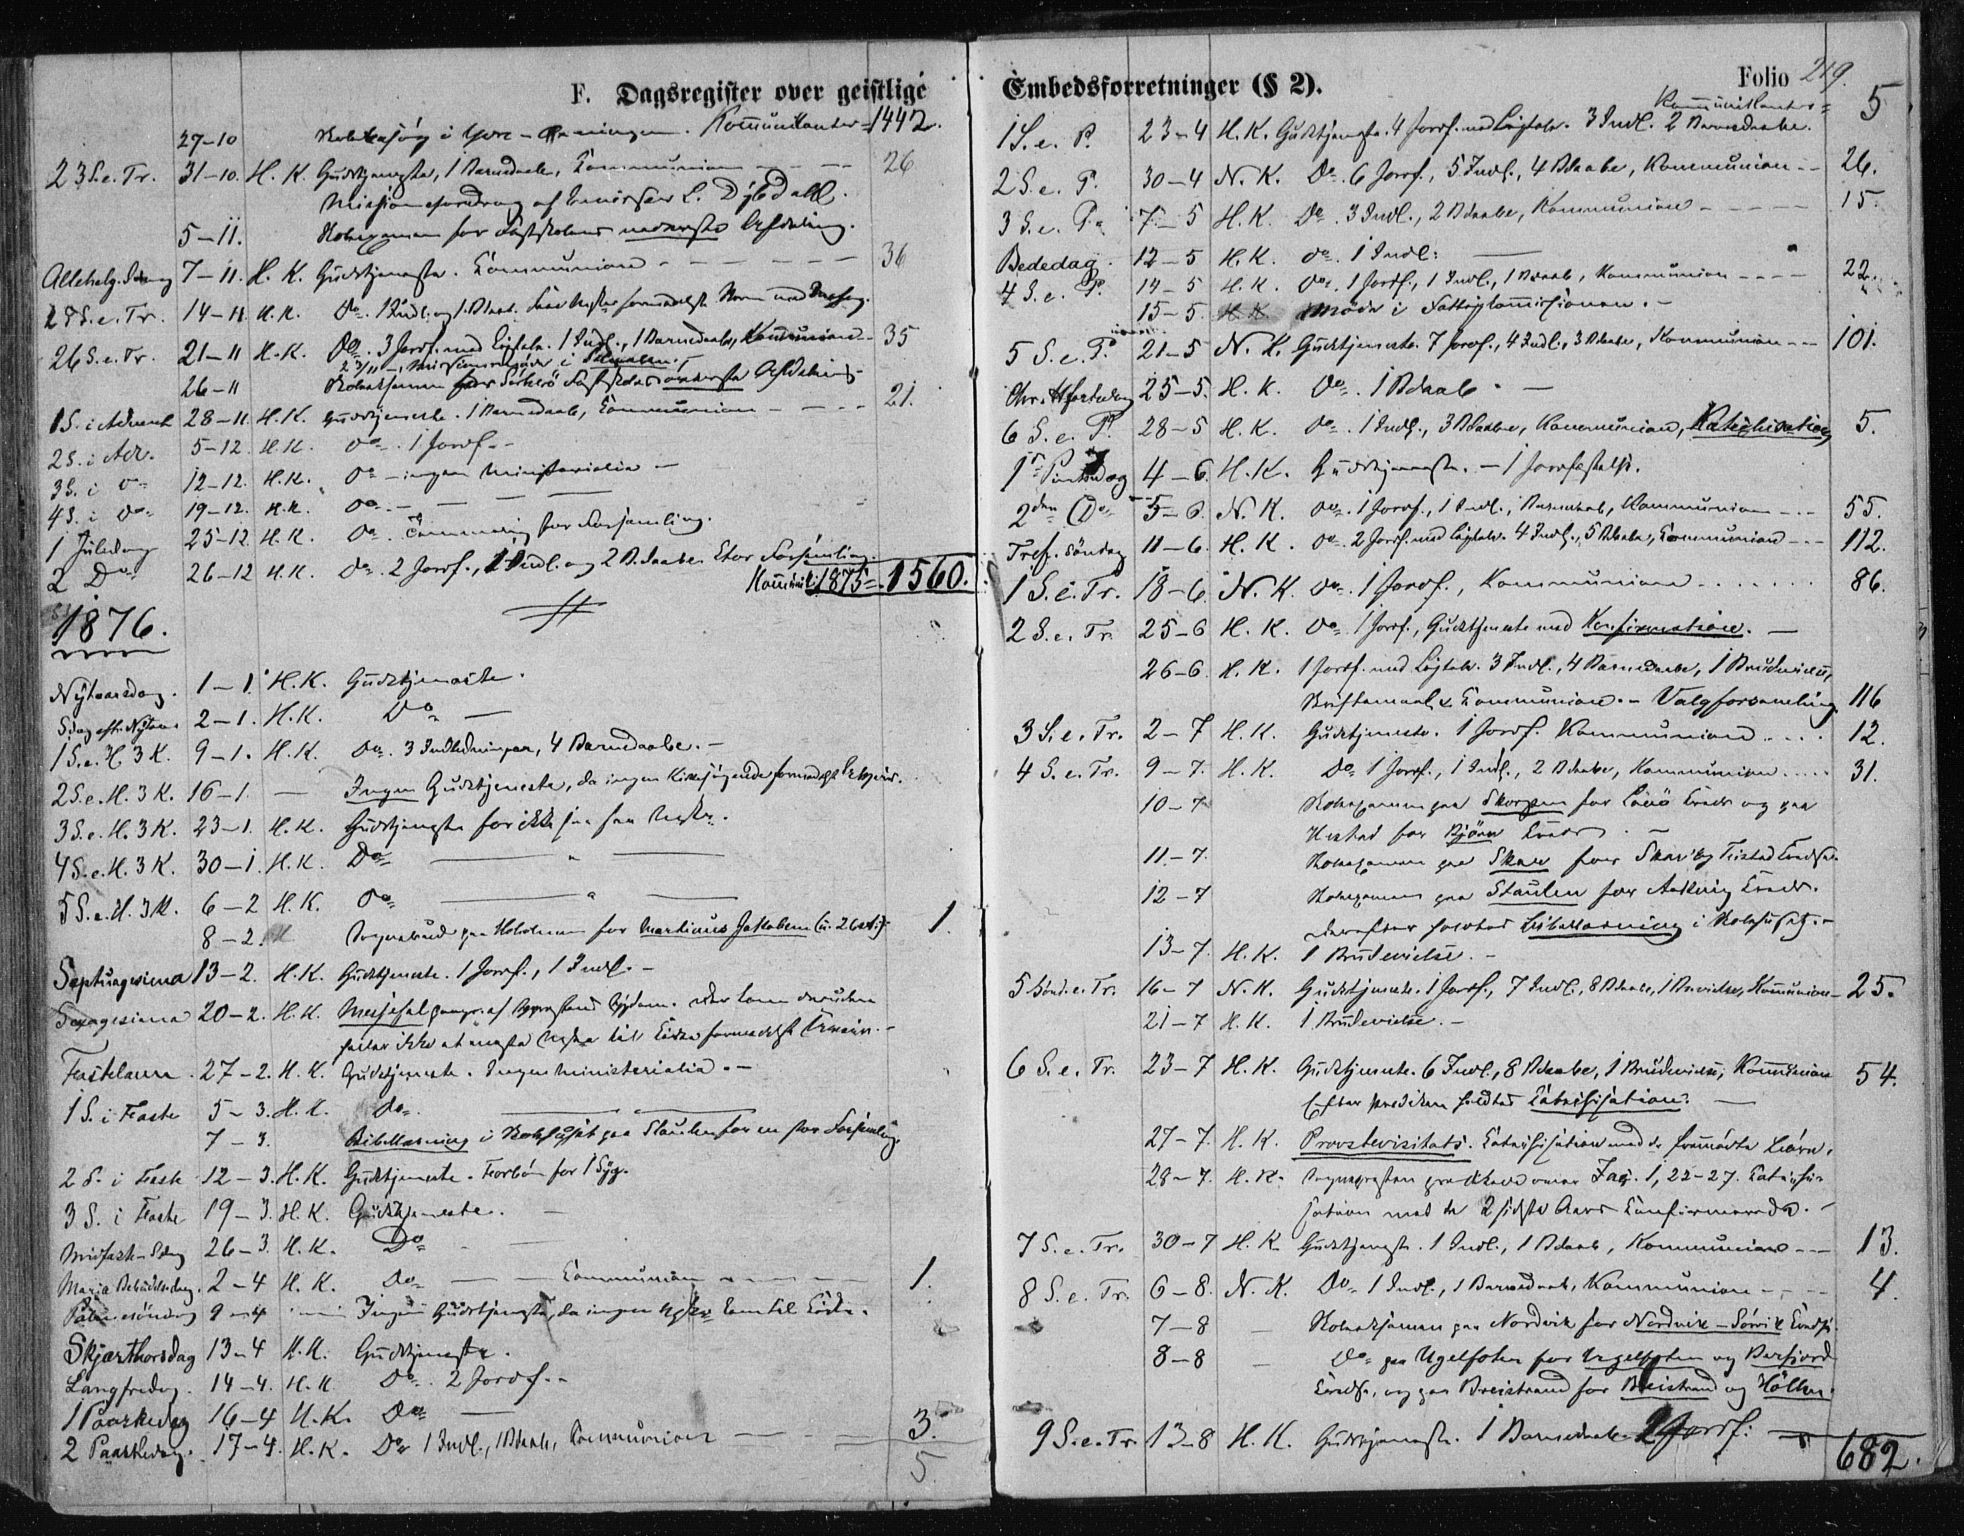 F. Dagsregister over geistlige
27-10 Kommunikanter = 1442.
23 S. e. Tr. 31-10. H. K. Gudstjeneste, 1 Barnedaab, Communion - - - 26
Missionsforedrag af
5-11. for Fastskolens nederste Afdeling.
Allehelg. Sdag 7-11. H. K. Gudstjeneste. Communion - - - - 36
14-11. H. K. Do.
26 S. e. Tr. 21-11 H. K. Do. 3 Jordf. med Ligtale. 1 Indl., 1 Barnedaab, Kommunion - 35
26-11 Fastskoles øverste Afdeling
1 S. i Advent 28-11. H. K. Gudstjeneste. 1 Barnedaab, Communion - - - - 21.
2 S. i Adv. 5-12. H. K. Do. 1 Jordf. -
3 S. i Do 12-12. H. K. Do - ingen Ministerialia -
4 S. i Do 19-12. H. K. Do. - - - -
1 Juledag 25-12. H. K. Do. Forsamling.
2 Do 26-12 H. K. Do. 2 Jordf., 1 Indl. og 2 B.daabe. Stor Forsamling.
1875 = 1560.
1876.
Nytaarsdag. 1-1. H. K. Gudstjeneste.
Sdag eft. Nytaar 2-1. H. K. Do -
1 S. e. H. 3 K. 9-1. H. K. Do. 3 Indledninger, 4 Barnedaabe. -
2 S. e. H. 3 K. 16-1. - Ingen Gudstjeneste, da ingen Kirkesøgende formedelst
3 S. e. H. 3 K. 23-1. H. K. Gudstjeneste for
4 S. e. H. 3 K. 30-1. H. K. Do - " -
5 S. e. H. 3 K. 6-2 H. K. Do - " -
8-2. Sognebud paa for Martinus Jakobsen 1.
Septuagesima 13-2. H. K. Gudstjeneste. 1 Jordf., 1 Indl. -
Sexagesima 20-2. H. K. Messefald
Fastelavn. 27-2. H. K. Gudstjeneste. Ingen Ministerialia. -
1 S. i Faste 5-3. H. K. do.
7-3. Bibellæsning i Skolehuset paa Staulen for en stor Forsamling.
2 S. i Faste 12-3. H. K. Gudstjeneste. Forbøn for 1 Syg.
3 S. i Faste 19-3. H. K. Gudstjeneste. -
Midfaste-Sdag 26-3. H. K. Do
Maria Bebudelsesdag. 2-4 H. K. Do - - Communion - - - 1.
Palmesøndag 9-4 Ingen Gudstjeneste, da ingen kom til Kirke.
Skjærthorsdag 13-4 H. K. Gudstjeneste.
Langfredag. 14-4. H. K. Do. 2 Jordf. -
1 Paaskedag 16-4 H. K. Do -
2 Paaskedag. 17-4. H. K. Do 1 Indl., 1 Bdaab, Communion - - - 3.
5.
Embedsforretninger (§ 2). Folio 219.
Kommunikanter =
1 S. e. P. 23-4 H. K. Gudstjeneste. 4 Jordf. med Ligtale. 3 Indl. 2 Barnedaabe. 5
2 S. e. P. 30-4 N. K. Do. 6 Jordf., 5 Indl., 4 Bdaabe, Kommunion - - 26.
3 S. e. P. 7-5 H. K. Do. 3 Indl., 2 Bdaabe, Kommunion - - - 15.
Bededag. 12-5 H. K. Do. 1 Indl: -
4 S. e. P. 14-5 H. K. Do. 1 Jordf., 1 Indl., 1 Bdaab, Kommunion - - - - 22.
15-5. H. K. Møde i Fattigkommissionen. -
5 S. e. P. 21-5 N. K. Gudstjeneste. 7 Jordf., 4 Indl., 3 Bdaabe, Kommunion - - 101.
Chr. Hfartsdag 25-5. H. K. Do. 1 Bdaab. -
6 S. e. P. 28-5 H. K. Do. 1 Indl., 3 Bdaabe, Kommunion, Katechisation 5.
1ste Pintsedag 4-6. H. K. Gudstjeneste. - 1 Jordfæstelse.
2den Do 5-6. N. K. Do. 1 Jordf., 1 Indl., 1 Barnedaab, Kommunion - - - 55.
Tref. Söndag 11-6. H. K. Do. 2 Jordf. med Ligtale. 4 Indl., 5 Bdaabe, Communion - - - 112.
1 S. e. Tr. 18-6. N. K. Do. 1 Jordf., Kommunion . . . . . . . 86.
2 S. e. Tr. 25-6 H. K. Do. 1 Jordf., Gudstjeneste med Konfirmation. -
26-6. H. K. 1 Jordf. med Ligtale. 3 Indl., 4 Barnedaabe, 1 Brudevielse,
Skriftemaal & Communion. - Valgforsamling 116
3 S. e. Tr. 2-7 H. K. Gudstjeneste. 1 Jordf. Kommunion . . . . 12.
4 S. e. Tr. 9-7. H. K. Do. 1 Jordf., 1 Indl., 2 Bdaabe, Kommunion . . . . . 31.
10-7 Skolexamen paa Skorpen for Kreds og paa
for Bjørn Kreds. -
11-7. Skolexamen paa Skar for Skar og Teistad Kredse.
12-7 Skolexamen paa Staulen for Kreds.
derefter holdtes Bibellæsning i Skolehuset. -
13-7. H. K. 1 Brudevielse. -
5 Sönd. e. Tr. 16-7 N. K. Gudstjeneste. 1 Jordf., 7 Indl., 8 Bdaabe, 1 Br.vielse, Kommunion - 25.
21-7 H. K. 1 Brudevielse. -
6 S. e. Tr. 23-7 H. K. Gudstjeneste. 6 Indl., 8 Bdaabe, 1 Brudevielse, Kommunion 54.
Efter Prediken holdtes Katechisation. -
27-7. H. K. Provstevisitats. Katechisation med de fremmødte Børn.
28-7. H. K. Sognepresten prædikede over Jac. 1, 22-27. Katechi-
sation med de 2 sidste Aars Confirmerede. -
7 S. e. Tr. 30-7 H. K. Gudstjeneste. 1 Indl., 1 Bdaab, Kommunion - - 13.
8 S. e. Tr. 6-8. N. K. Do. 1 Indl., 1 Barnedaab, Kommunion - - - - 4.
7-8 - Skoleksamen paa Nordvik for Nordvik - Sørvik Kreds.
8-8 - Do. paa Ugelfoten for Ugelfoten og Barfjord
Kreds., og paa Breistrand for Breistrand og
9 S. e. Tr. 13-8 H. K. Gudstjeneste. 1 Barnedaab. 2 Jordf.
682.